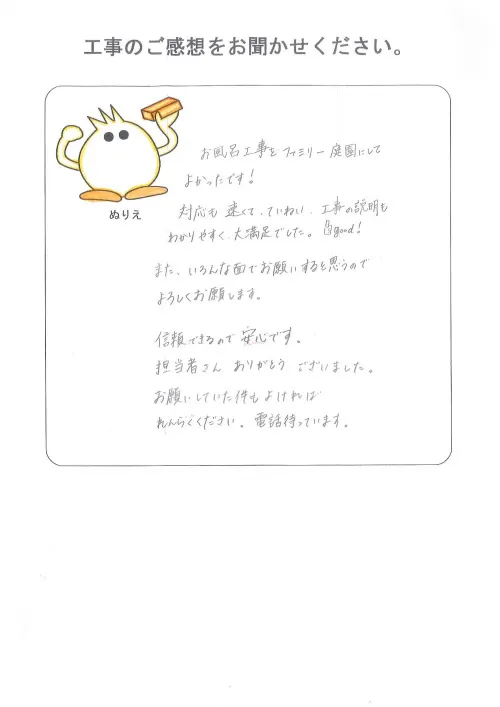 工事のご感想をお聞かせください。
ぬりえ
お風呂工事を ファミリー庭園にして
よかったです!
対応も 速くて、ていねい、工事の説明も
わかりやすく、大満足でした。good!
また、いろんな面でお願いすると思うので
よろしくお願します。
信頼できるので 安心です。
担当者さん ありがとう ございました。
お願いしていた件も よければ
れんらくください。電話待っています。